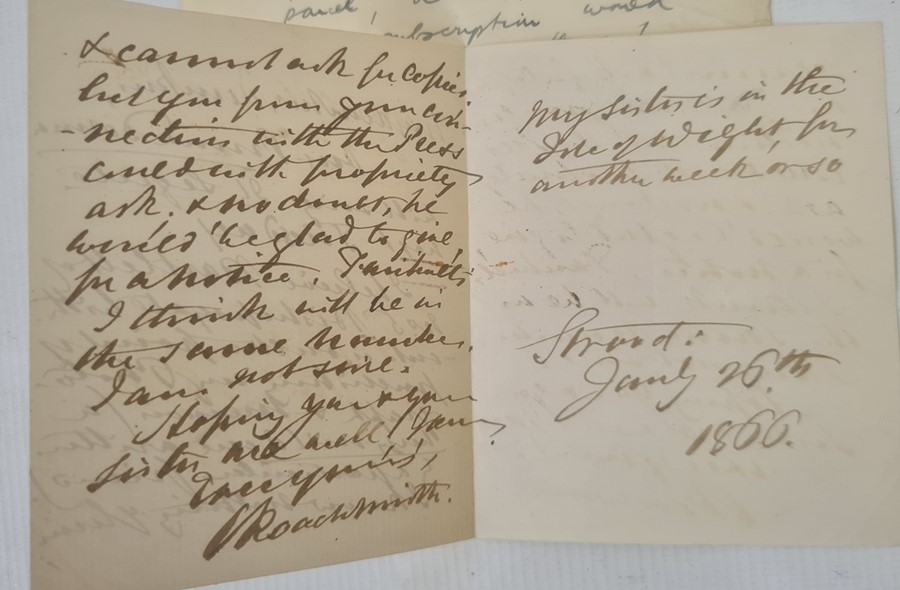 panel, a
subscription would
& cannot ask for copies
but you from your con-
-nection with the Press
could with propriety
ask, & no doubt, he
would be glad to give,
for a notice.
I think will be in
the same number.
I am not sure.
Hoping you & your
sister are well, I am
Ever yours,
C Roach Smith.
My sister is in the
Isle of Wight, for
another week or so
Strood:
Jany 26.th
1866.